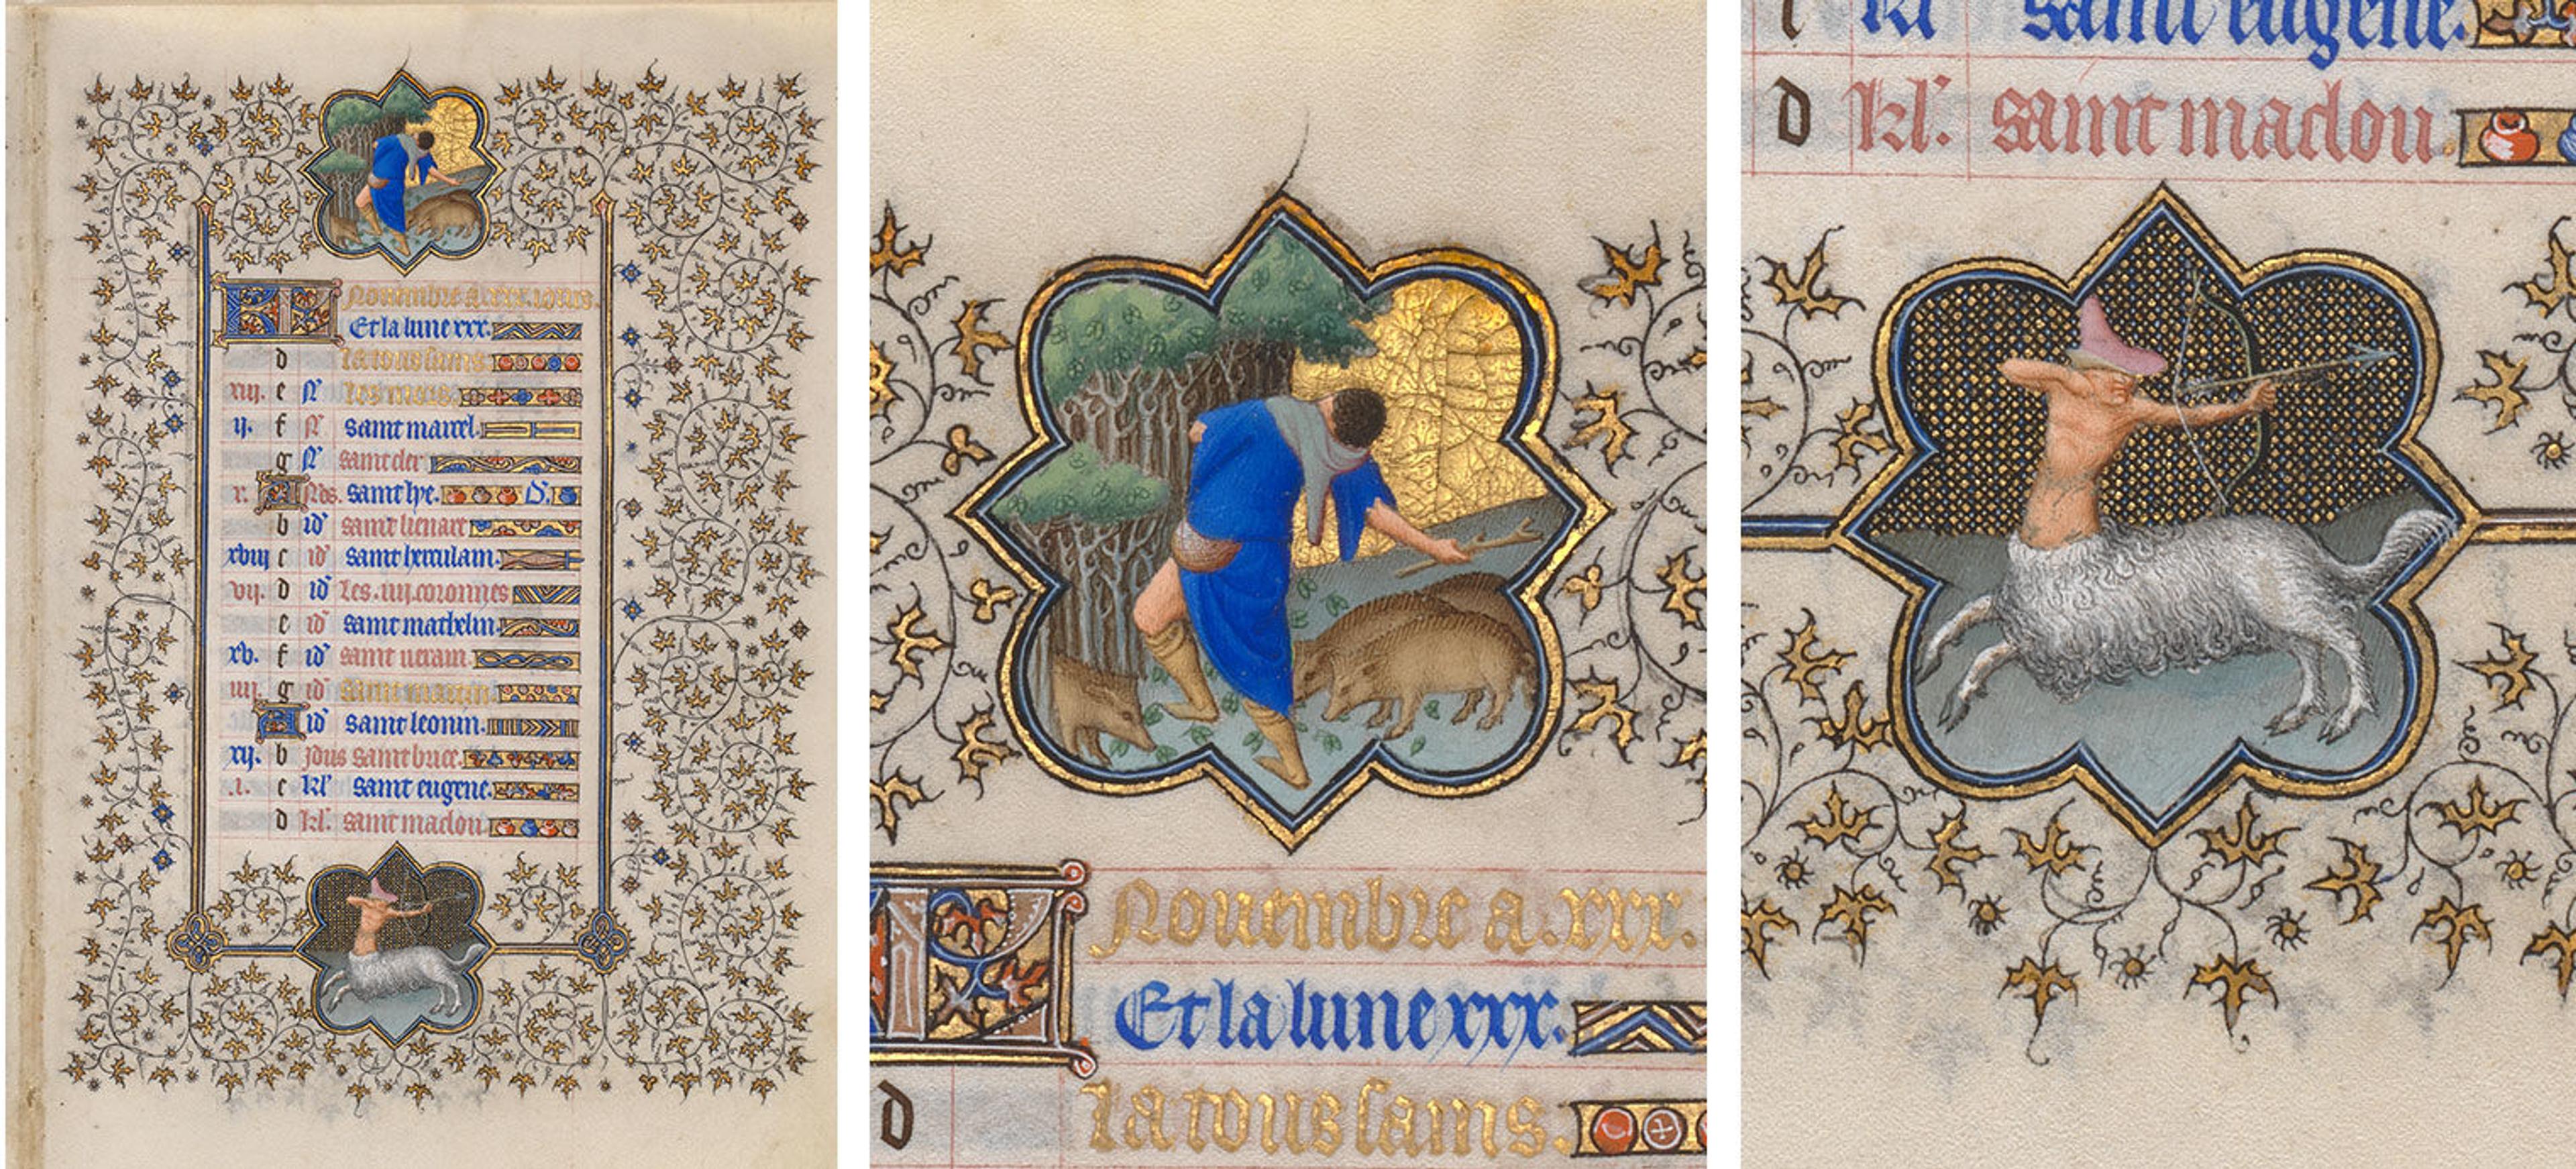 Nouembre a .xxx. iours.
Et la lune xxx.
d La toussains.
xiij. e N Les mors.
ij. f N saint marcel.
g N saint cler
x. A Nos. saint lye.
b id saint lienart
xviij c id saint herculain.
vij. d id Les .iiij. coronnes
e id saint mathelin.
xv. f id saint ueram.
iiij. g id Saint martin.
A id saint leonin.
xij. b Idus saint brice.
i. c kl saint eugene.
d kl. saint maclou.
Nouembre a .xxx.
Et la lune xxx.
d La toussains.
kl saint eugene.
d kl. saint maclou.